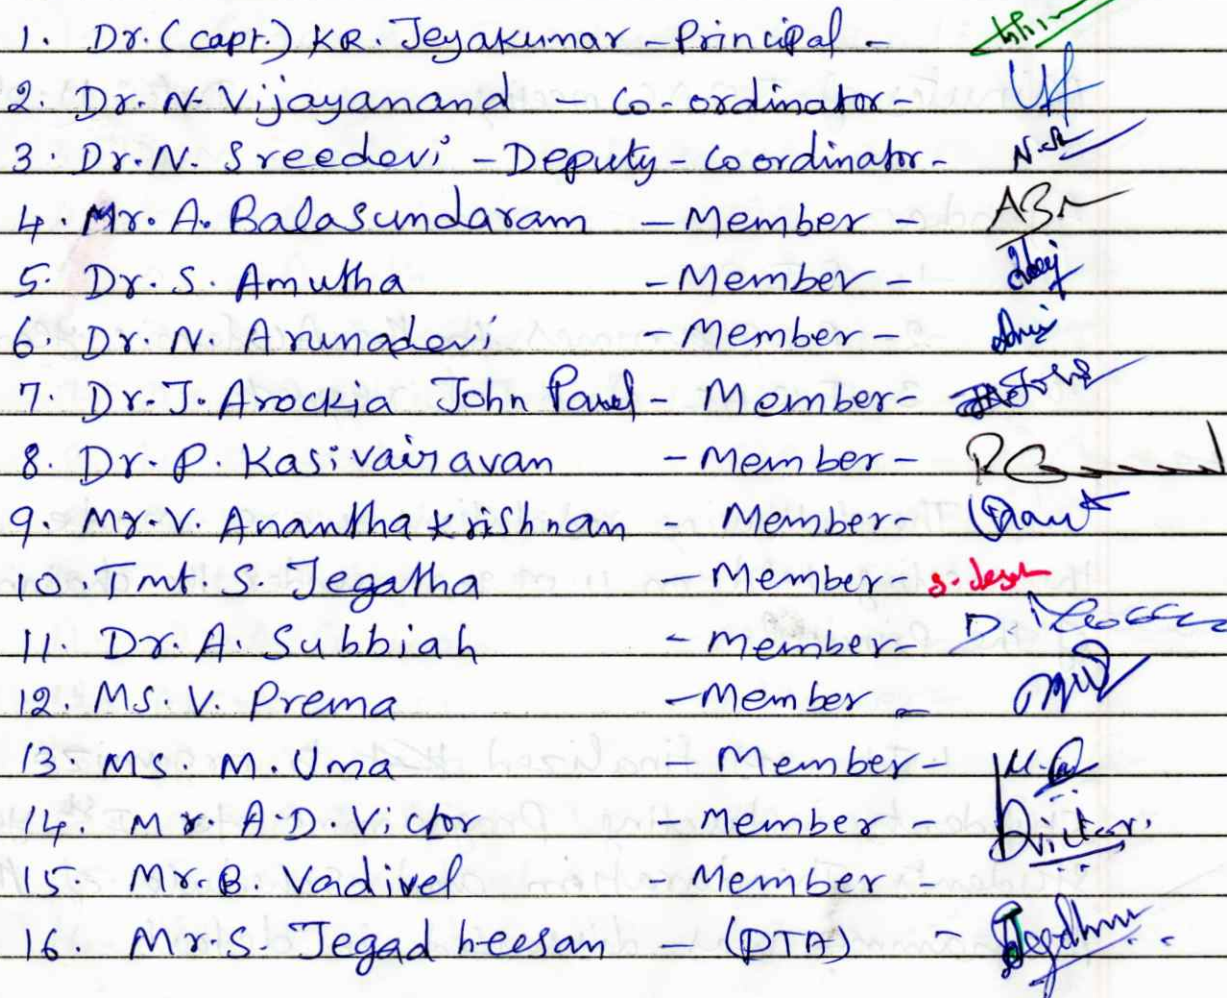 1. Dr. (capt.) KR. Jeyakumar - Principal -
2. Dr. N. Vijayanand - Co-ordinator -
3. Dr. N. Sreedevi - Deputy - Coordinator -
4. Mr. A. Balasundaram - Member -
5. Dr. S. Amutha - Member -
6. Dr. N. Arunadevi - Member -
7. Dr. J. Arockia John Paul - Member -
8. Dr. P. Kasivairavan - Member -
9. Mr. V. Anantha Krishnan - Member -
10. Tmt. S. Jegatha - Member -
11. Dr. A. Subbiah - Member -
12. Ms. V. Prema - Member -
13. Ms. M. Uma - Member -
14. Mr. A.D. Victor - Member - Victor
15. Mr. B. Vadivel - Member -
16. Mr. S. Jegadheesan - (PTA) -